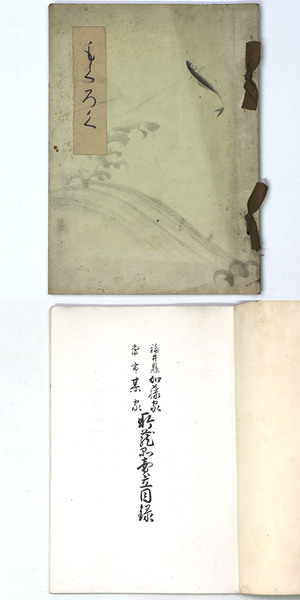 もくろく
福井縣加藤家
當市某家
所蔵品賣立目録